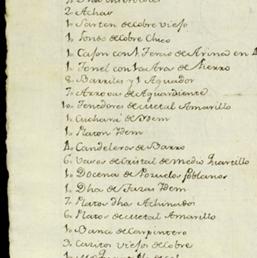 2. Achas
1. Sarten de Cobre viejo
1. Fondo de Cobre Chico
1. Cajon con 1. Tercio de Arina en
1. Tonel con Aros de Fierro
8. Barriles y 1 Aguador
7. Arrovas de Aguardiente
10. Tenedores de Metal Amarillo
1. Cuchara de Idem
1. Platon Idem
4. Candeleros de Barro
6. Vasos de Cristal de medio Quartillo
1. Docena de Pozuelos Poblanos
1. Dha de Tazas Idem
7. Platos dhos Achinados
6. Platos de Metal Amarillo
1. Banca de Carpintero
3. Cazos viejos de Cobre